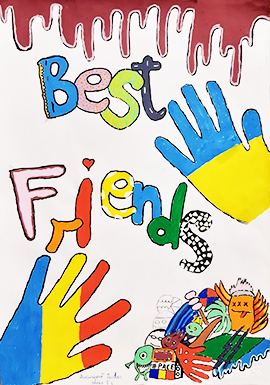 Best
Friends
PEACE